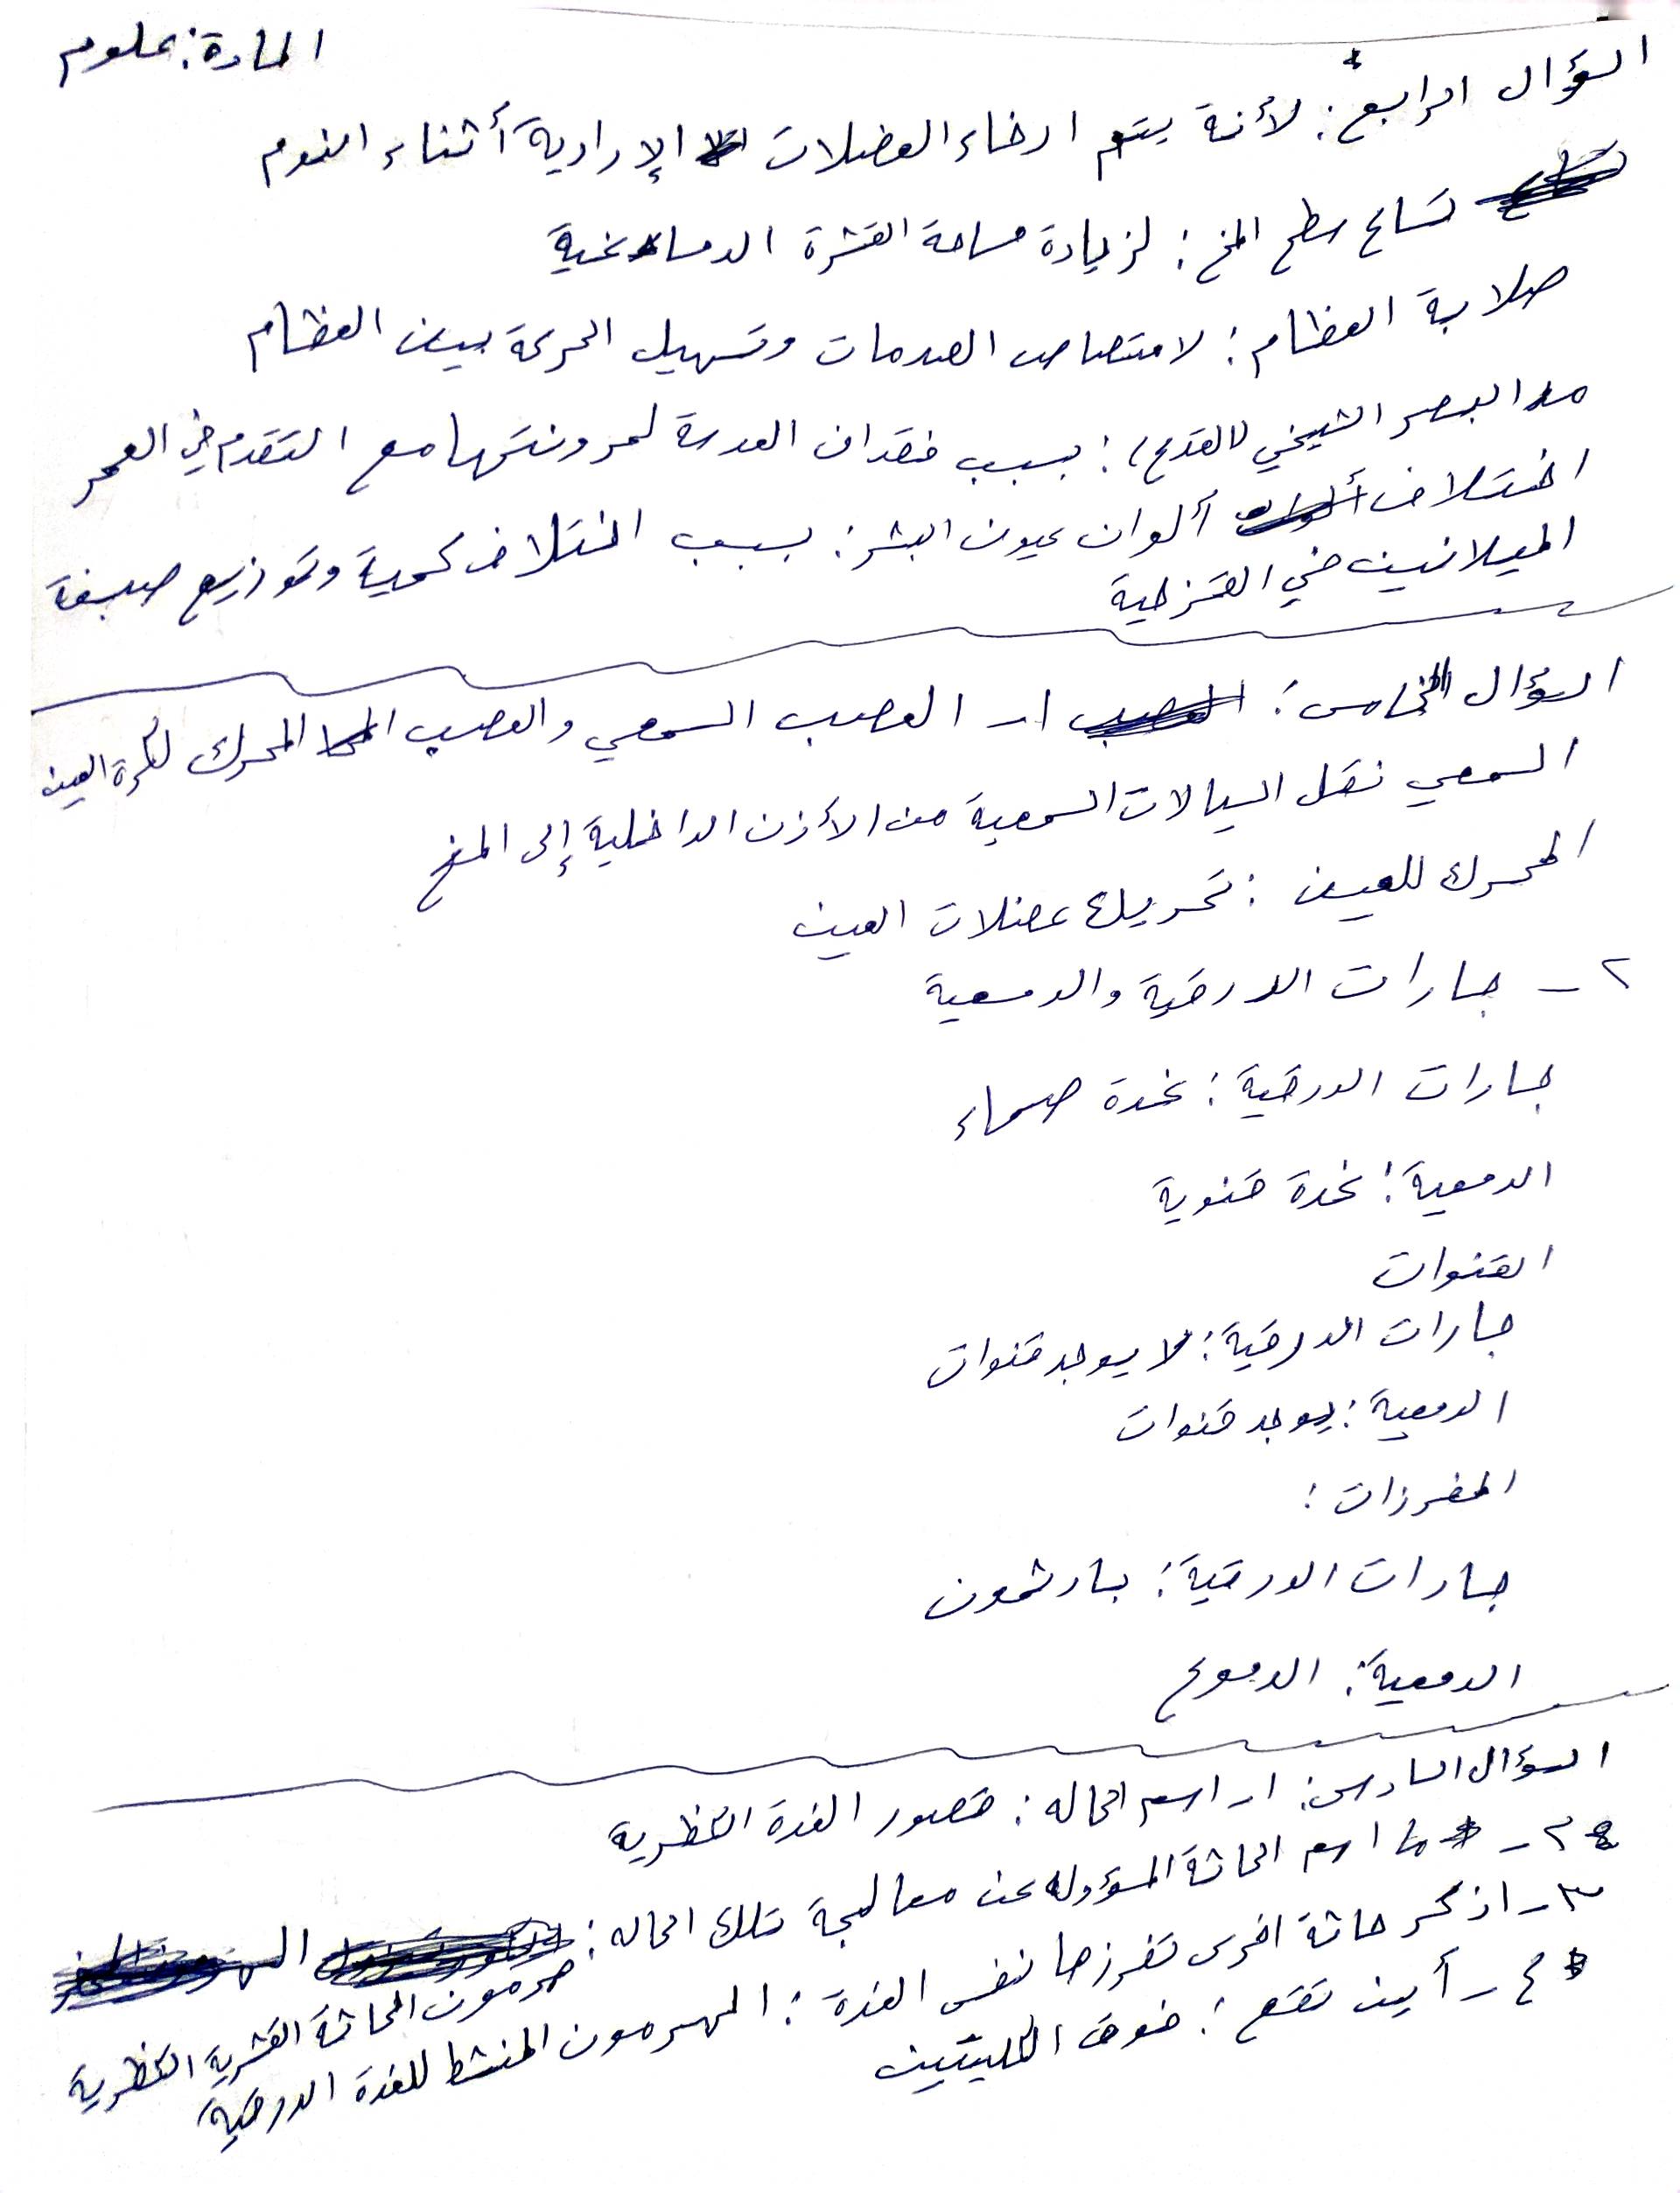 المادة: علوم
السؤال الرابع: لأنة يتم ارخاء العضلات الإرادية أثناء النوم
تساع سطح المخ: لزيادة مساحة القشرة الدماغية
صلابة العظام: لامتصاص الصدمات وتسهيل الحركة بين العظام
مد البصر الشيخي (القدع): بسبب فقدان العدسة لمرونتها مع التقدم في العمر
اختلاف ألوان عيون البشر: بسبب اختلاف كمية وتوزيع صبغة
الميلانين في القزحية
السؤال الخامس: ١- العصب السمعي والعصب المحرك لكرة العين
السمعي نقل السيالات السمعية من الأذن الداخلية إلى المخ
المحرك للعين: تحريك عضلات العين
٢- جارات الدرقية والدمعية
جارات الدرقية: غدة صماء
الدمعية: غدة قنوية
القنوات
جارات الدرقية: لا يوجد قنوات
الدمعية: يوجد قنوات
المفرزات:
جارات الدرقية: بارثمون
الدمعية: الدموع
السؤال السادس: ١- اسم الحاله: قصور الغدة الكظرية
٢- ما اسم الحاثة المسؤوله عن معالجة تلك الحاله:
هرمون الحاثة القشرية الكظرية
٣- اذكر حاثة اخرى تفرزها نفس الغدة: الهرمون المنشط للغدة الدرقية
٤- أين تقع: فوق الكليتين